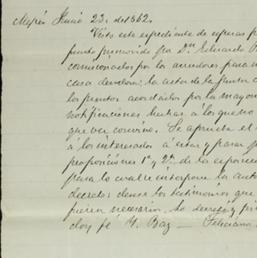 Mexico Junio 23. de 1862.
Visto este espediente de esperas
promovido por Dn. Eduardo
comisionados por los acreedores para
casa deudora; la acta de la junta
los puntos acordados por la mayo
notificaciones hechas á los que no
que ver convino. Se aprueba el
á los interesados á estar y pasar
proposiciones 1a y 2a de la
para lo cual se interpone la auto
decreto: dense los testimonios que
pieren necesarios. Lo decretó y fir
doy fé Y. Baz — Feliciano